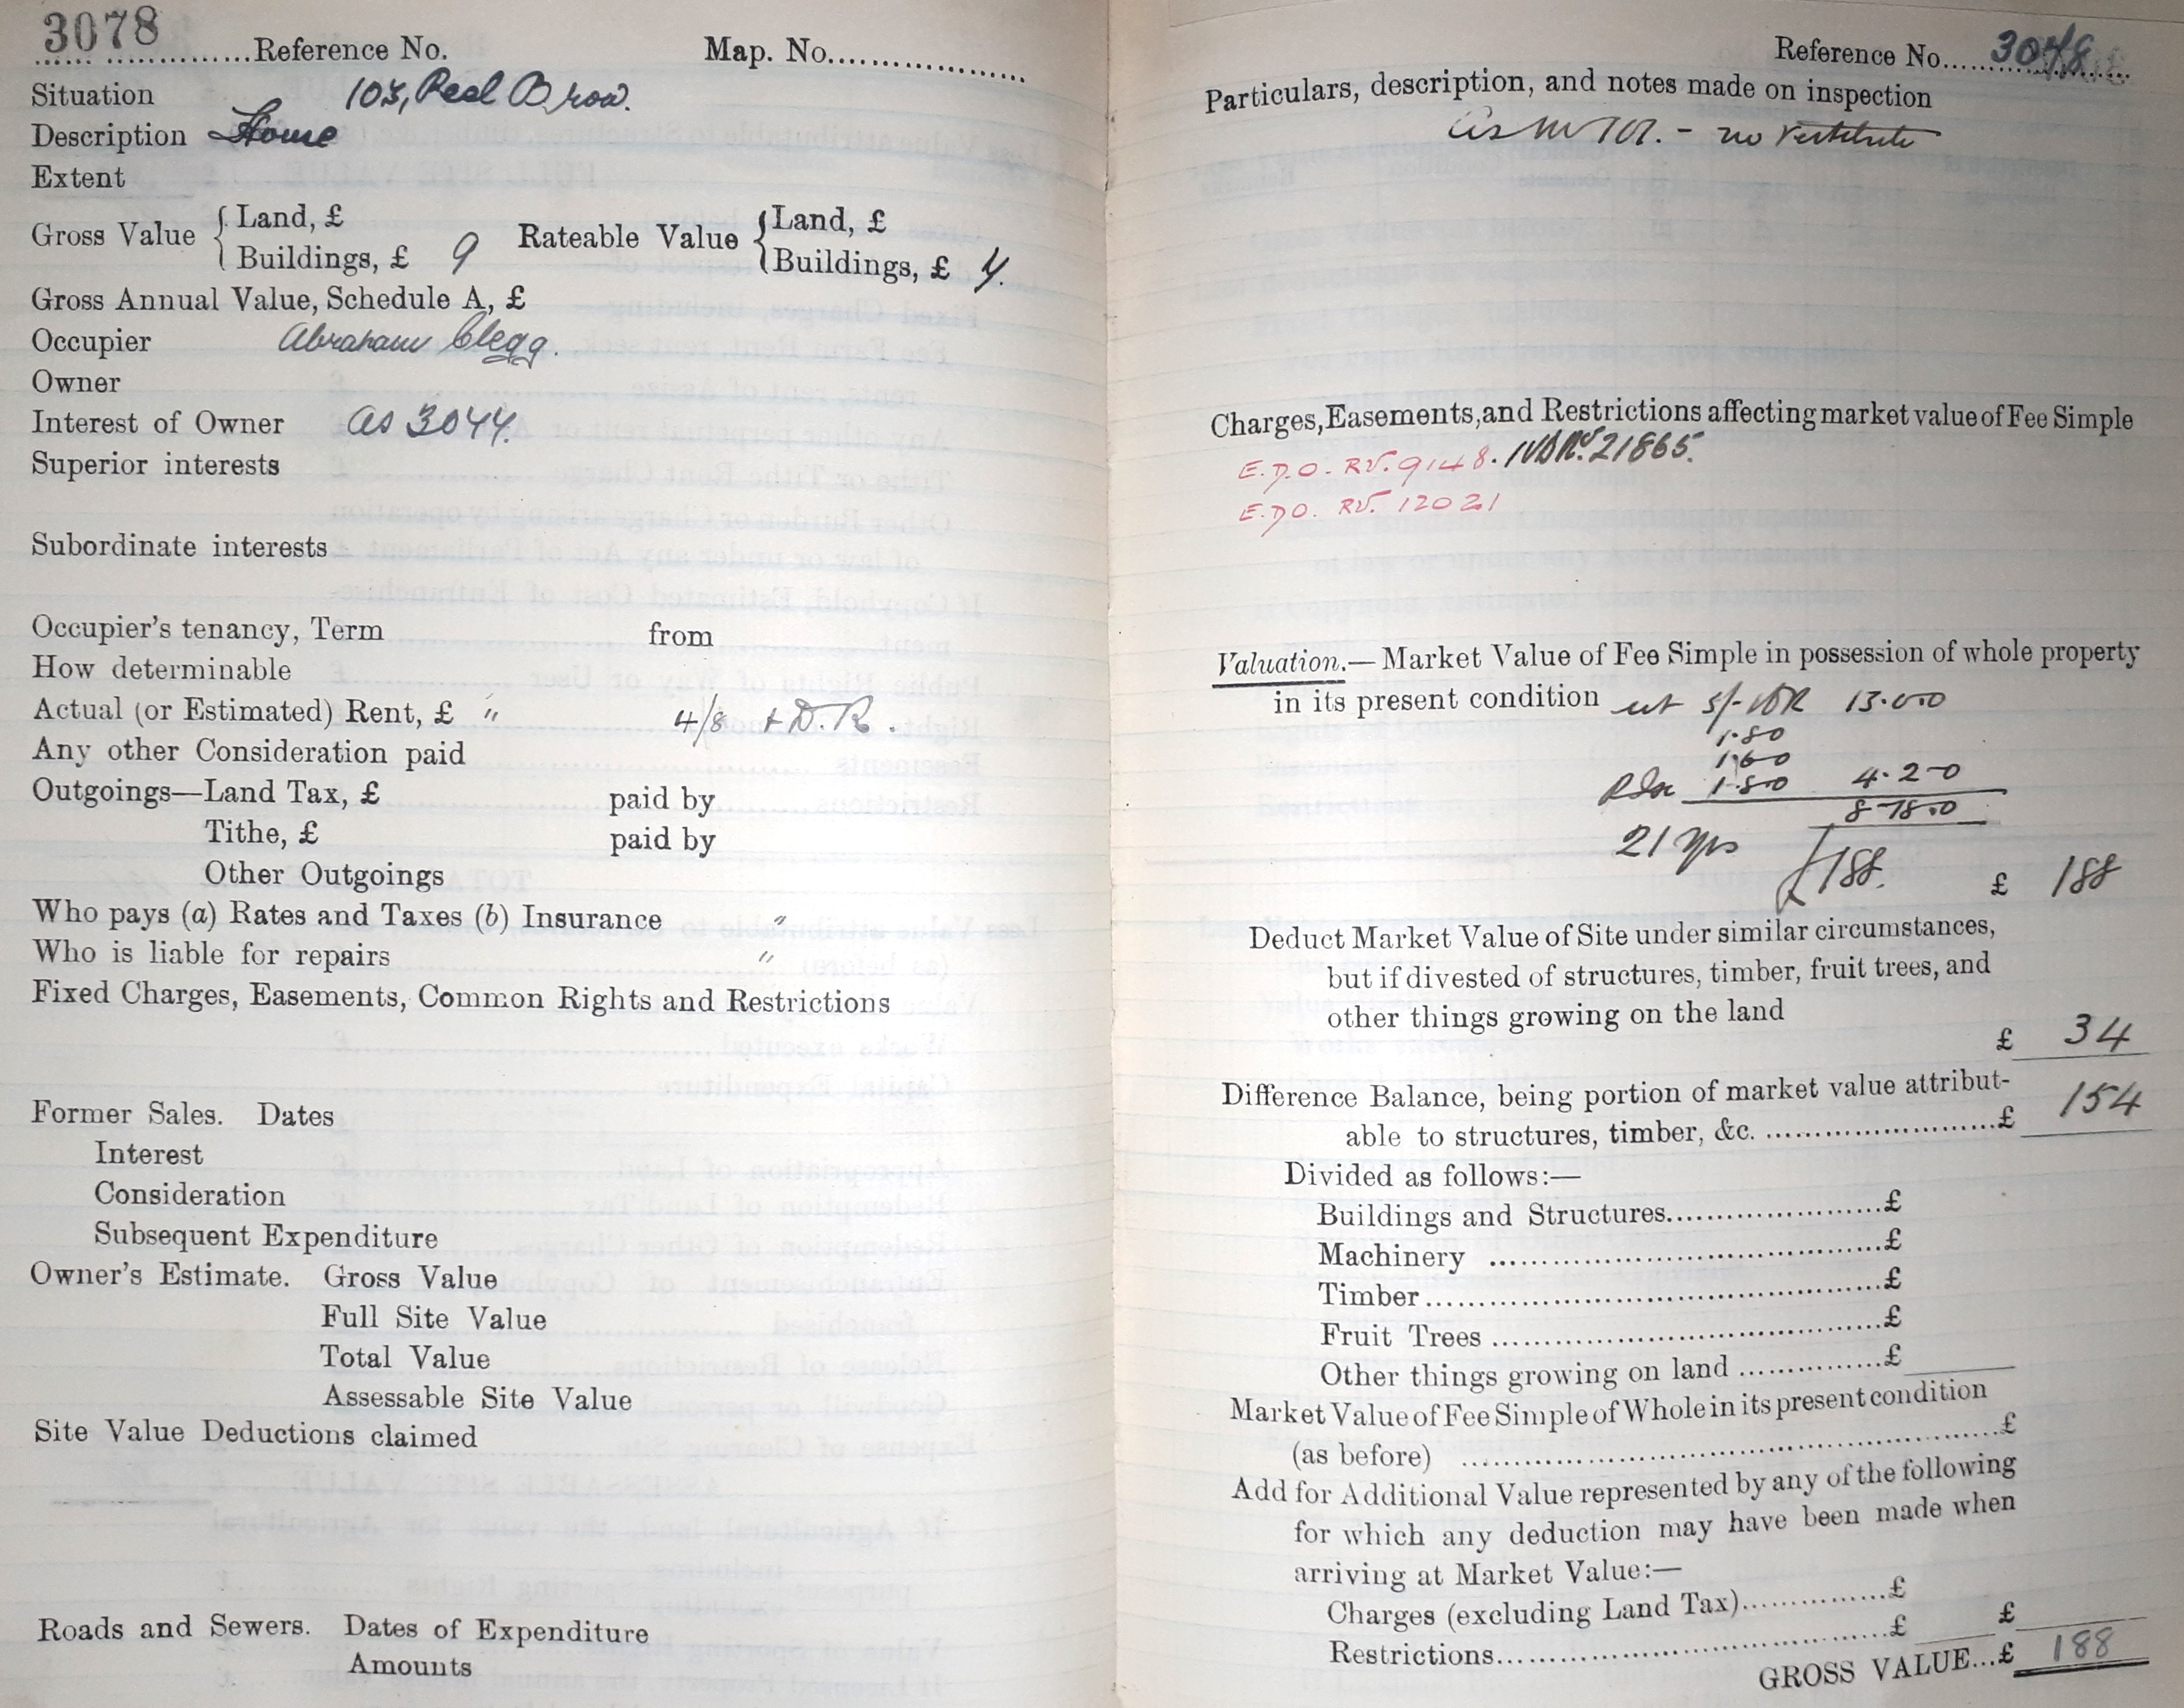 3078
Reference No. Map. No.
Situation 103, Peel Brow.
Description House
Extent
Gross Value { Land, £ Rateable Value { Land, £
Buildings, £ 9 Buildings, £
Gross Annual Value, Schedule A, £
Occupier Abraham Clegg.
Owner
Interest of Owner as 3044.
Superior interests
Subordinate interests
Occupier's tenancy, Term from
How determinable
Actual (or Estimated) Rent, £ " 4/8 + D.R.
Any other Consideration paid
Outgoings—Land Tax, £ paid by
Tithe, £ paid by
Other Outgoings
Who pays (a) Rates and Taxes (b) Insurance "
Who is liable for repairs "
Fixed Charges, Easements, Common Rights and Restrictions
Former Sales. Dates
Interest
Consideration
Subsequent Expenditure
Owner's Estimate. Gross Value
Full Site Value
Total Value
Assessable Site Value
Site Value Deductions claimed
Roads and Sewers. Dates of Expenditure
Amounts
Reference No. 3078
Particulars, description, and notes made on inspection
as no 101. - no
Charges, Easements, and Restrictions affecting market value of Fee Simple
E.D.O. RV. 9148. IVD No. 21865.
E.D.O. RV. 12021
Valuation.— Market Value of Fee Simple in possession of whole property
in its present condition at 5/- 13.0.0
1.80
1.60
1.80 4.2-0
8-18.0
21 yrs £188.
£ 188
Deduct Market Value of Site under similar circumstances,
but if divested of structures, timber, fruit trees, and
other things growing on the land
£ 34
Difference Balance, being portion of market value attribut-
able to structures, timber, &c. £ 154
Divided as follows:—
Buildings and Structures £
Machinery £
Timber £
Fruit Trees £
Other things growing on land £
Market Value of Fee Simple of Whole in its present condition
(as before) £
Add for Additional Value represented by any of the following
for which any deduction may have been made when
arriving at Market Value:—
Charges (excluding Land Tax) £
Restrictions £ £
GROSS VALUE...£ 188